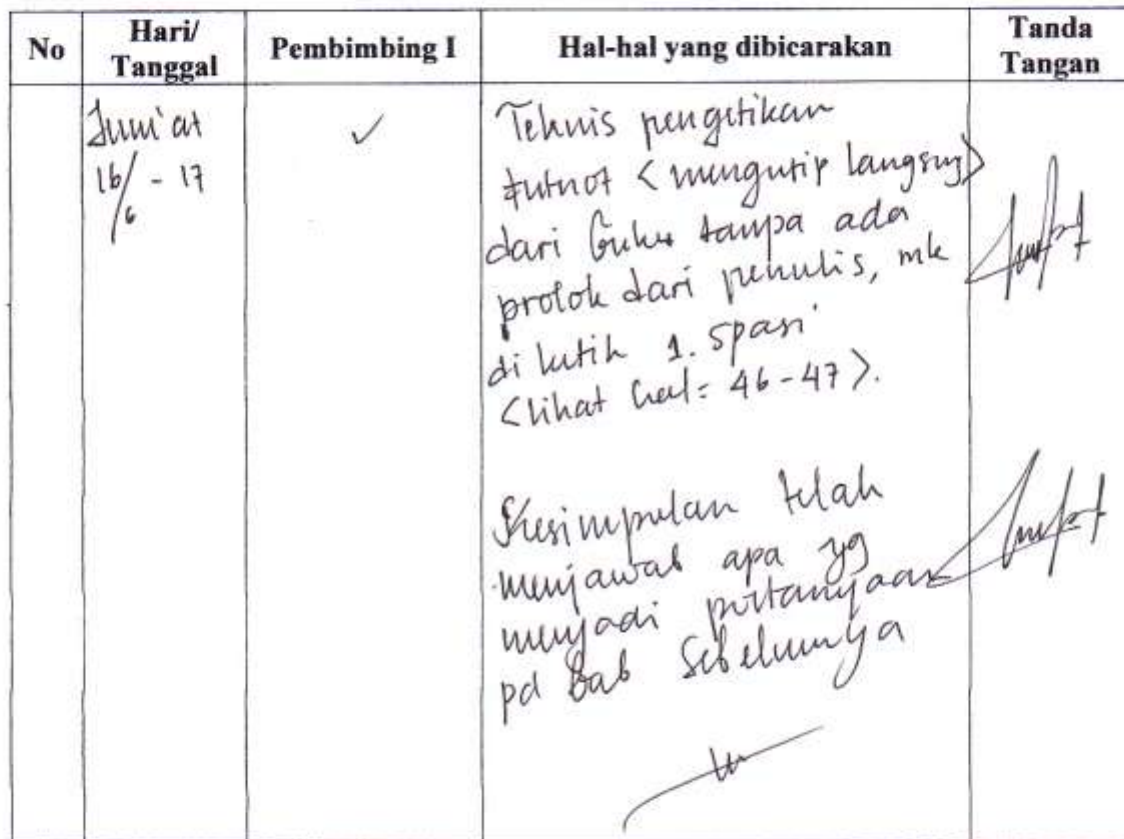 No
Hari/
Tanggal
Pembimbing I
Hal-hal yang dibicarakan
Tanda
Tangan
Jum'at
16/6 - 17
✓
Tehnis pengetikan
futnot <mengutip langsung>
dari buku tanpa ada
prolok dari penulis, mk
di ketik 1. spasi
<lihat hal: 46-47>.
Kesimpulan telah
menjawab apa yg
menjadi pertanyaan
pd Bab Sebelumnya